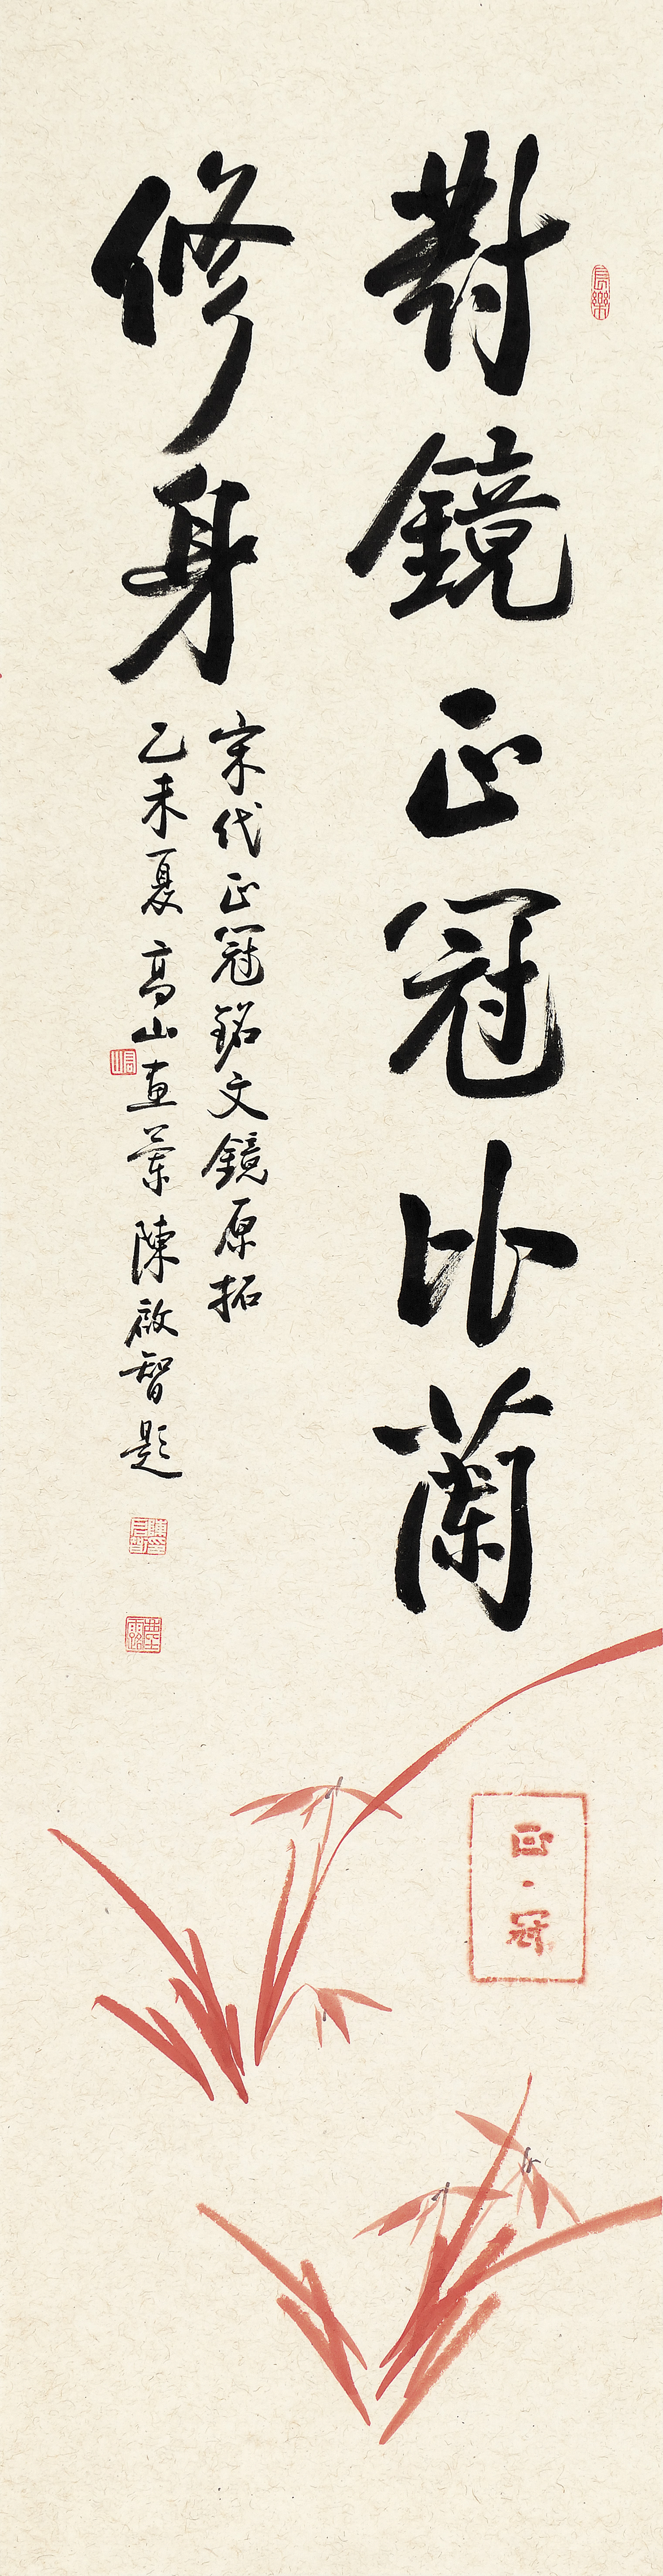 對鏡正冠比蘭
修身
宋代正冠銘文鏡原拓
乙未夏高山畫蘭陳啟智題
長樂
正·冠